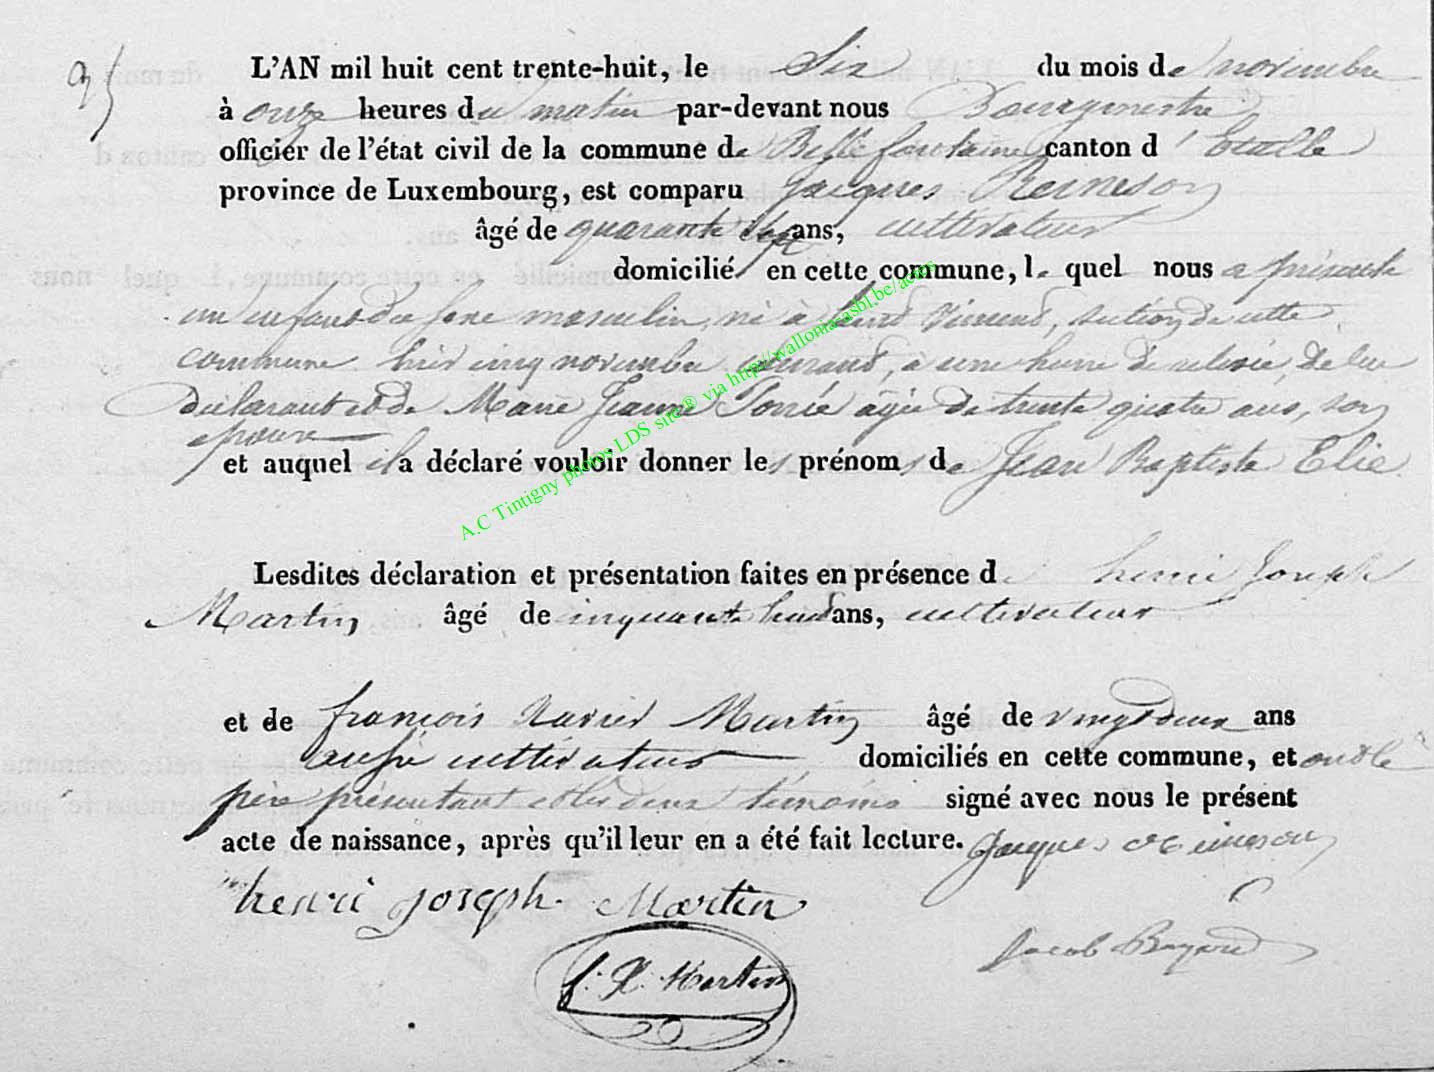 95
L'AN mil huit cent trente-huit, le Six du mois de novembre
à onze heures du matin par-devant nous Bourgmestre
officier de l'état civil de la commune de Bellefontaine canton d'Etalle
province de Luxembourg, est comparu Jacques Remeson
âgé de quarante sept ans, cultivateur
domicilié en cette commune, le quel nous a présenté
un enfant du sexe masculin, né à Saint Vincent, section de cette
commune hier cinq novembre courant, à une heure de relevée, de lui
déclarant et de Marie Jeanne agée de trente quatre ans, son
épouse
et auquel il a déclaré vouloir donner les prénoms de Jean Baptiste Elie
Lesdites déclaration et présentation faites en présence de henri Joseph
Martin âgé de cinquante huit ans, cultivateur
et de françois Xavier Martin âgé de vingt deux ans
aussi cultivateur domiciliés en cette commune, et ont le
père présentant et les deux témoins signé avec nous le présent
acte de naissance, après qu'il leur en a été fait lecture. Jacques Remeson
henri joseph Martin
Jacob Bayard
f. X. Martin
A.C Tintigny photos LDS site® via http://wallonia.asbl.be/actes